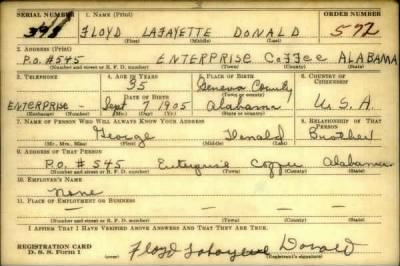 SERIAL NUMBER 1. NAME (Print) ORDER NUMBER
395 FLOYD LAFAYETTE DONALD 592
(First) (Middle) (Last)
2. ADDRESS (Print)
P.O. #545 ENTERPRISE Coffee ALABAMA
(Number and street or R. F. D. number) (Town) (County) (State)
3. TELEPHONE 4. AGE IN YEARS 5. PLACE OF BIRTH 6. COUNTRY OF CITIZENSHIP
35 Geneva County
DATE OF BIRTH (Town or county)
ENTERPRISE - Sept 7 1905 Alabama U.S.A.
(Exchange) (Number) (Mo.) (Day) (Yr.) (State or country)
7. NAME OF PERSON WHO WILL ALWAYS KNOW YOUR ADDRESS 8. RELATIONSHIP OF THAT PERSON
George Donald Brother
(Mr., Mrs., Miss) (First) (Middle) (Last)
9. ADDRESS OF THAT PERSON
P.O. # 545 Enterprise Coffee Alabama
(Number and street or R. F. D. number) (Town) (County) (State)
10. EMPLOYER'S NAME
None
11. PLACE OF EMPLOYMENT OR BUSINESS
(Number and street or R. F. D. number) (Town) (County) (State)
I AFFIRM THAT I HAVE VERIFIED ABOVE ANSWERS AND THAT THEY ARE TRUE.
REGISTRATION CARD
D. S. S. Form 1 Floyd Lafayette Donald
(Registrant's signature)